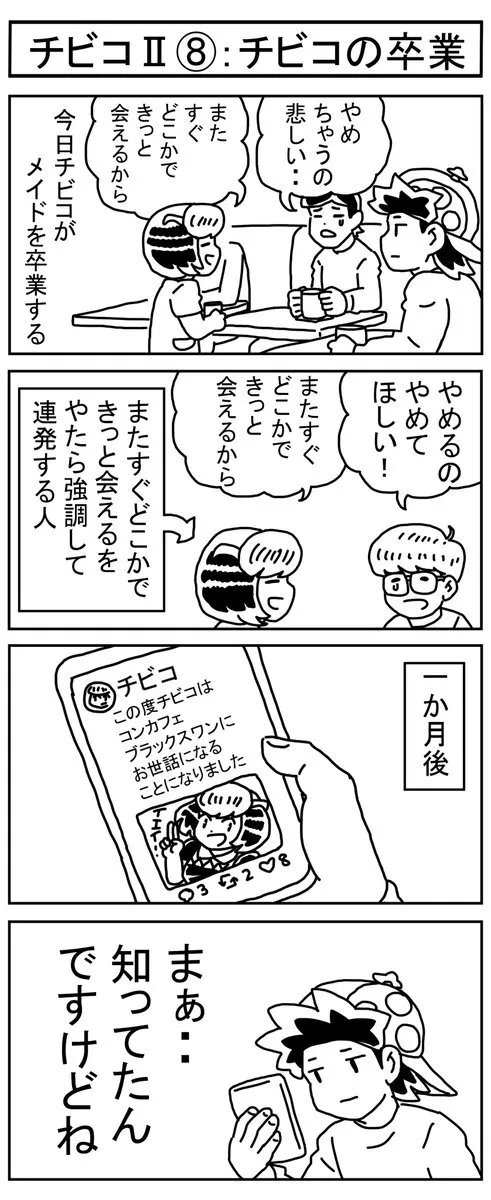 チビコⅡ⑧:チビコの卒業
今日チビコが
メイドを卒業する
やめ
ちゃうの
悲しい‥
また
すぐ
どこかで
きっと
会えるから
やめるの
やめて
ほしい!
またすぐ
どこかで
きっと
会えるから
またすぐどこかで
きっと会えるを
やたら強調して
連発する人
一か月後
チビコ
この度チビコは
コンカフェ
ブラックスワンに
お世話になる
ことになりました
イエイ‥
3 2 8
まぁ‥
知ってたん
ですけどね